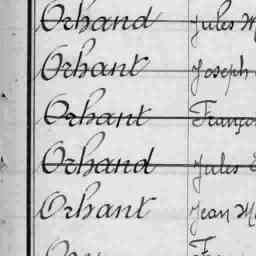 Orhand Jules M
Orhant Joseph
Orhant Franço
Orhand Jules
Orhant Jean M